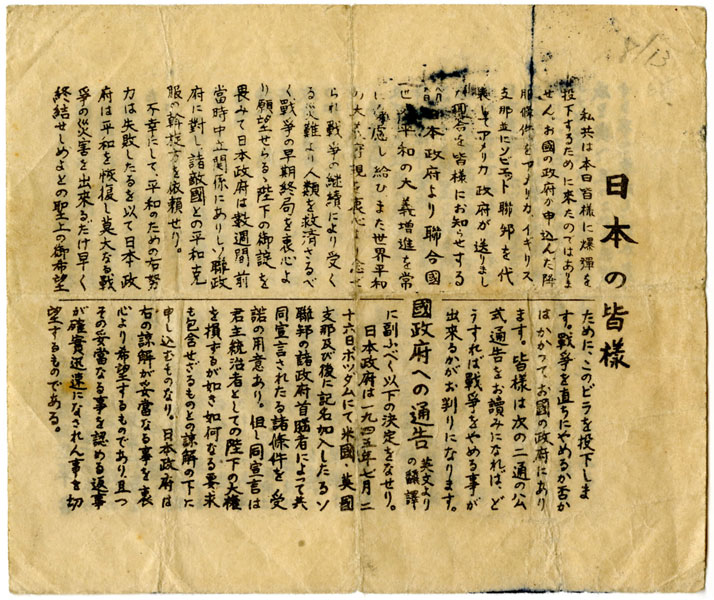 8/13
日本の皆様
私共は本日皆様に爆彈を
投下するために来たのではありま
せん。お國の政府が申込んだ降
服條件をアメリカ、イギリス、
支那並にソビエット聯邦を代
表してアメリカ政府が送りまし
た回答を皆様にお知らせする
ために、このビラを投下しま
す。戰爭を直ちにやめるか否か
はかかってお國の政府にあり
ます。皆様は次の二通の公
式通告をお讀みになれば、ど
うすれば戰爭をやめる事が
出来るかがお判りになります。
本政府より聯合國
國政府への通告 英文より
の飜譯
世界平和の大義増進を常
慮し給ひまた世界平和
の大義實現を衷心より念
られ戰爭の継続により受く
る災難より人類を救済さるべ
く戰爭の早期終局を衷心よ
り願望せらるゝ陛下の御諚を
畏みて日本政府は数週間前
當時中立関係にありしソ聯政
府に對し諸敵國との平和克
服の斡旋方を依頼せり。
不幸にして、平和のための右努
力は失敗したるを以て日本政
府は平和を恢復し莫大なる戰
爭の災害を出来るだけ早く
終結せしめよとの聖上の御希望
に副ふべく以下の決定をなせり。
日本政府は一九四五年七月二
十六日ポツダムにて米國・英國
支那及び後に記名加入したるソ
聯邦の諸政府首腦者によって共
同宣言されたる諸條件を受
諾の用意あり。但し同宣言は
君主統治者としての陛下の大權
を損するが如き如何なる要求
も包含せざるものとの諒解の下に
申し込むものなり。日本政府は
右の諒解が妥當なる事を衷
心より希望するものであり、且つ
その妥當なる事を認める返事
が確實迅速になされん事を切
望するものである。